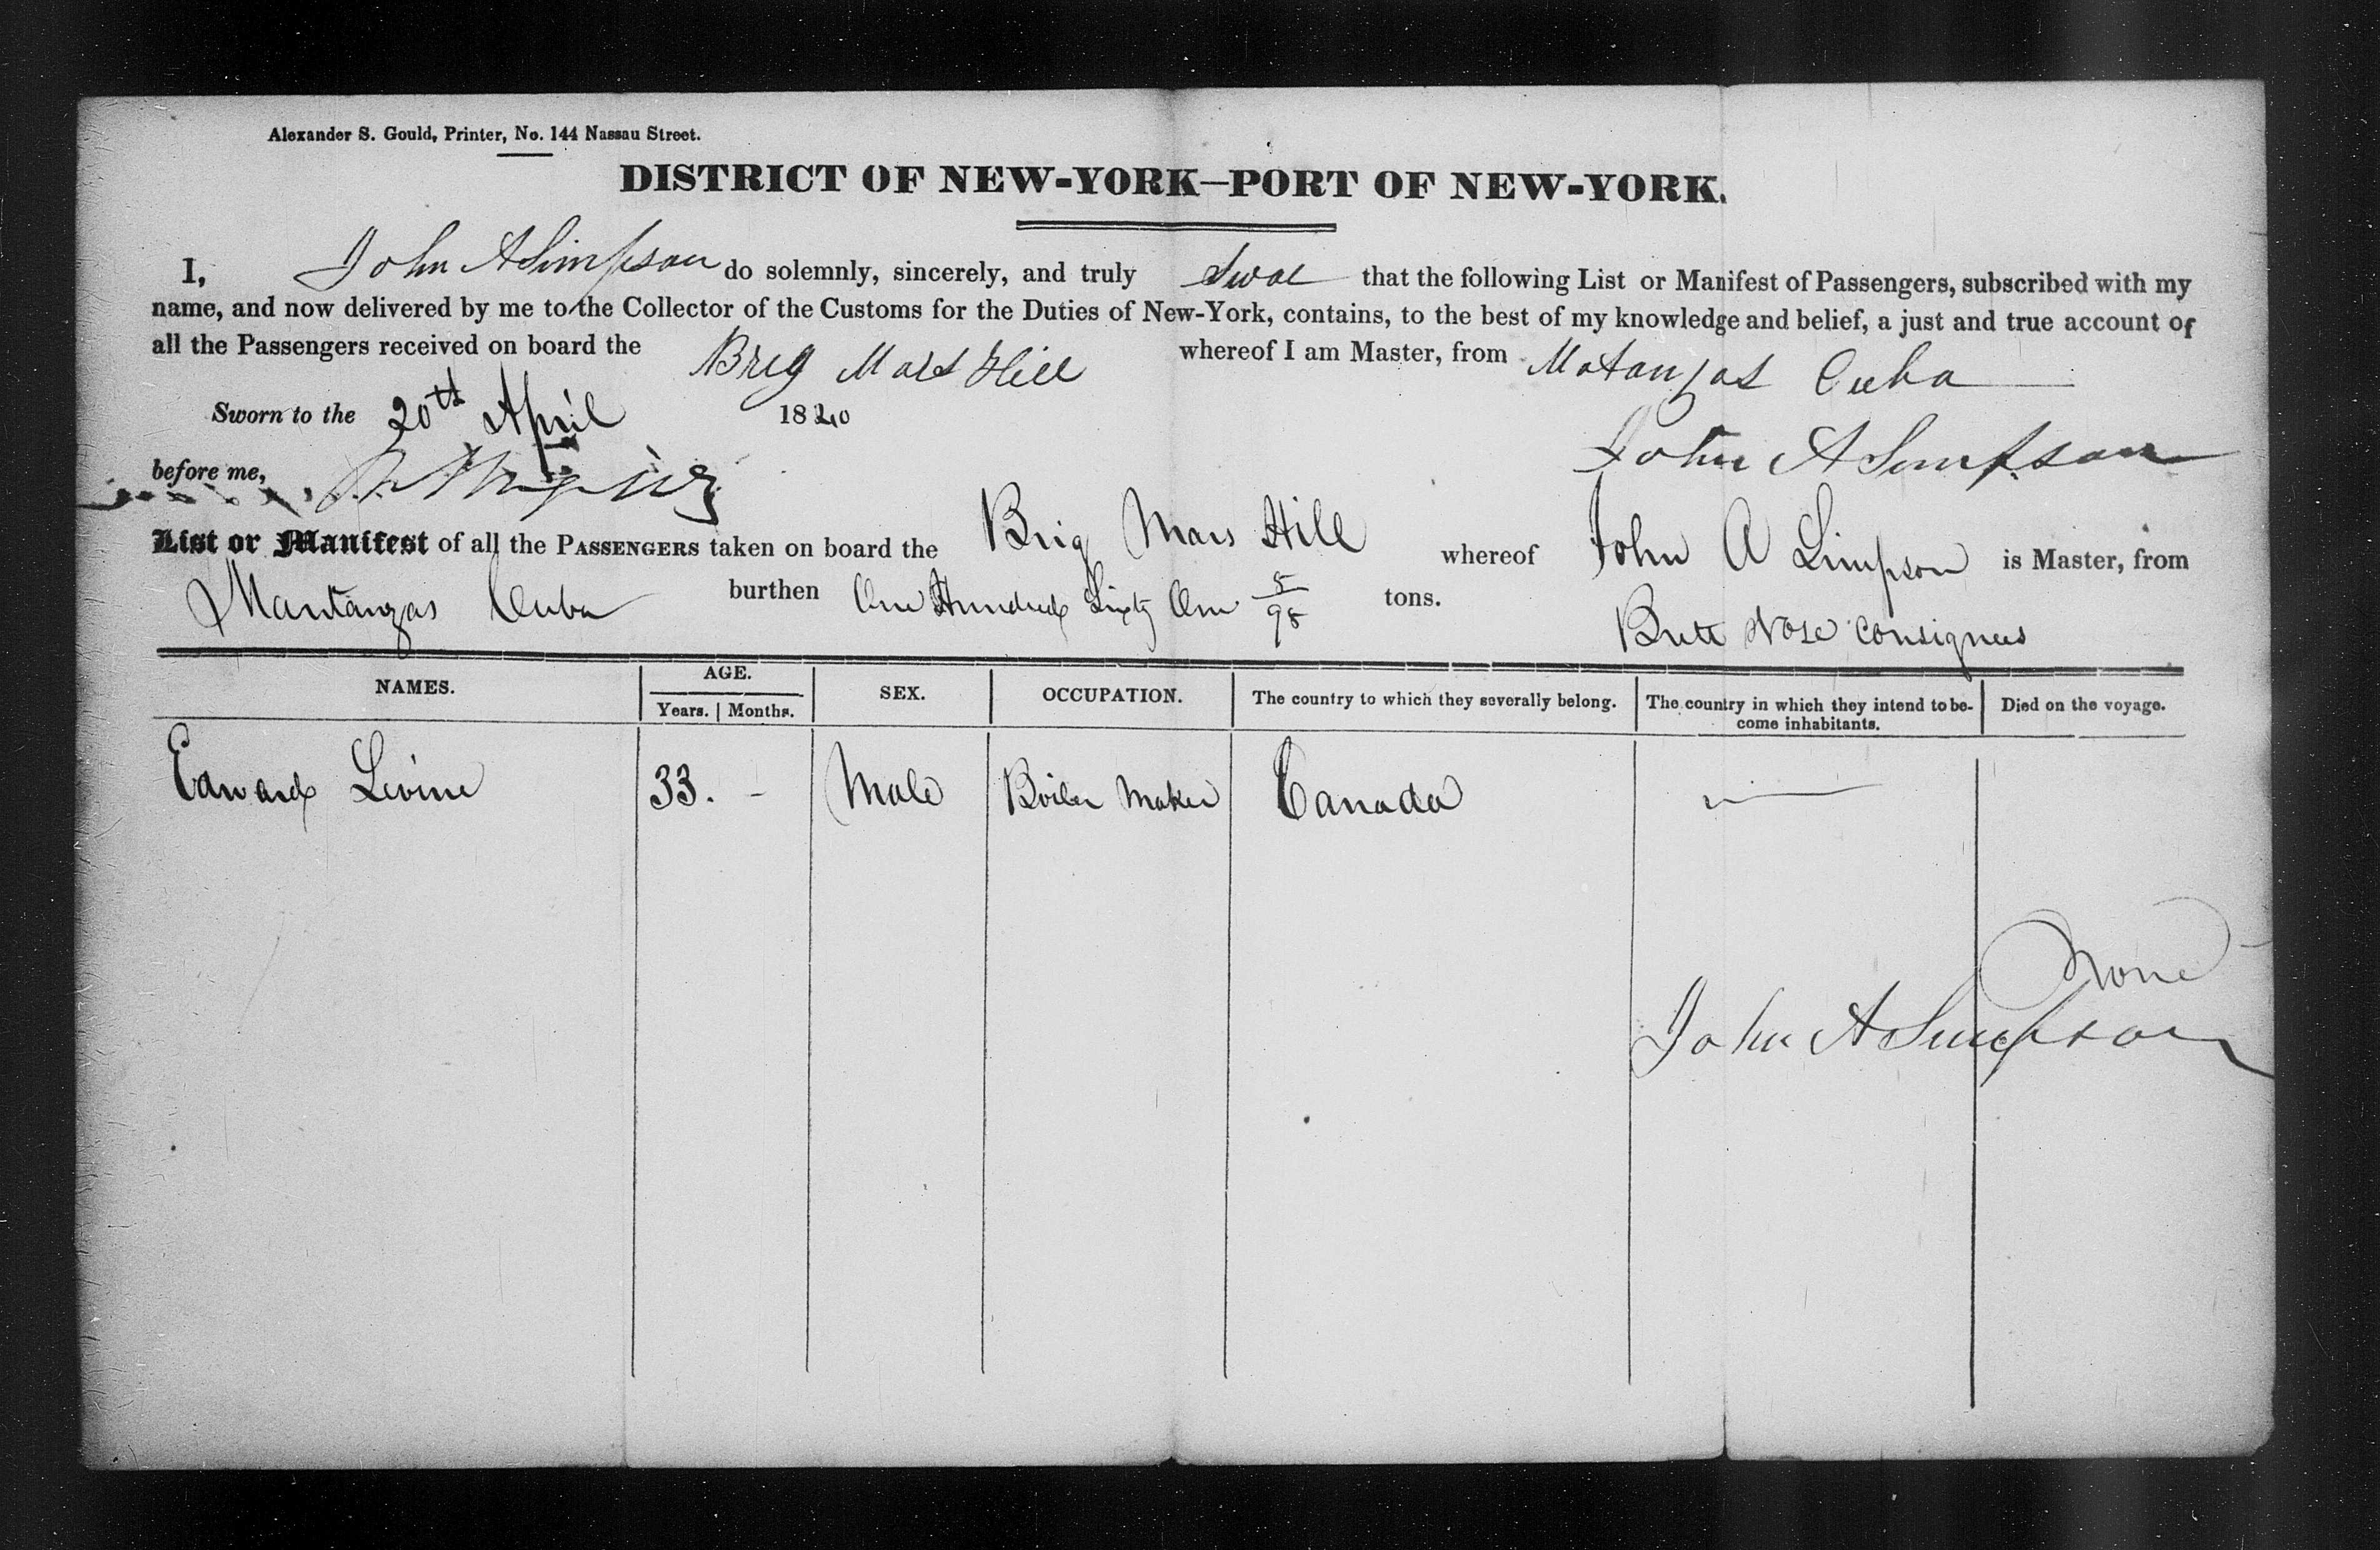 Alexander S. Gould, Printer, No. 144 Nassau Street.
DISTRICT OF NEW-YORK—PORT OF NEW-YORK.
I, John A Simpson do solemnly, sincerely, and truly that the following List or Manifest of Passengers, subscribed with my
name, and now delivered by me to the Collector of the Customs for the Duties of New-York, contains, to the best of my knowledge and belief, a just and true account of
all the Passengers received on board the Brig Mars Hill whereof I am Master, from Matanzas Cuba
Sworn to the 20th April 1840
John A Simpson
before me,
List or Manifest of all the PASSENGERS taken on board the Brig Mars Hill whereof John A Simpson is Master, from
Mantanzas Cuba burthen One Hundred Sixty One 5/95 tons.
consignees
NAMES. AGE. SEX. OCCUPATION. The country to which they severally belong. The country in which they intend to be- come inhabitants. Died on the voyage.
Years. Months.
Edward Levine 33. - Male Boiler Maker Canada —
None
John A Simpson